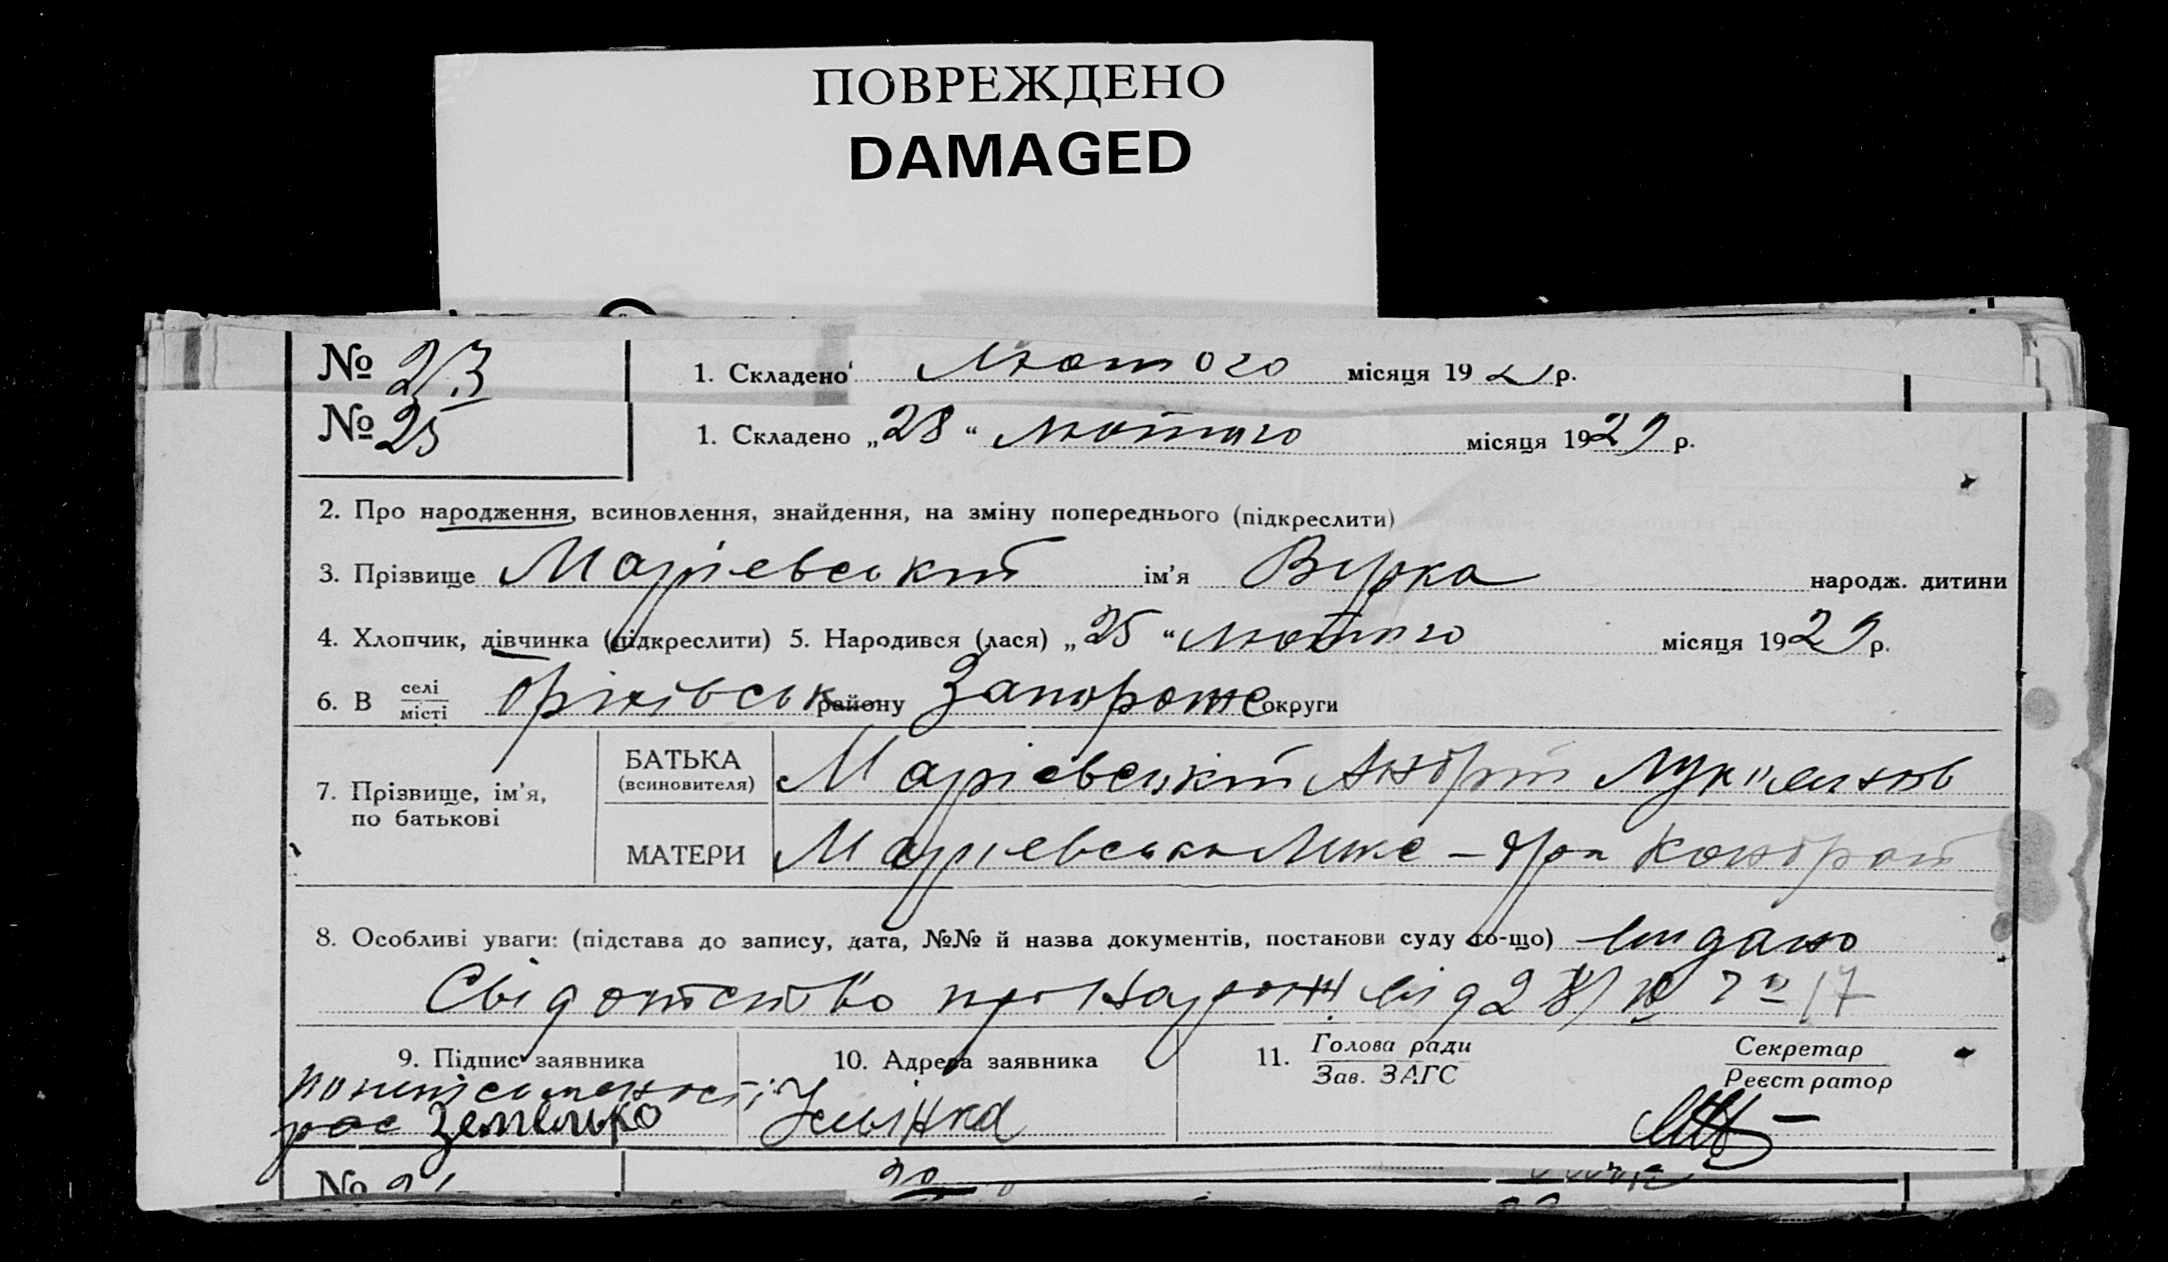 ПОВРЕЖДЕНО
DAMAGED
№ 23 1. Складено лютого місяця 192 р.
№ 25 1. Складено „28“ лютого місяця 1929 р.
2. Про народження, всиновлення, знайдення, на зміну попереднього (підкреслити)
3. Прізвище ім'я Вірка народж. дитини
4. Хлопчик, дівчинка (підкреслити) 5. Народився (лася) „25“ лютого місяця 1929 р.
6. В селі/місті Оріхівськ району Запорож округи
7. Прізвище, ім'я, по батькові
БАТЬКА (всиновителя) Андрій
МАТЕРИ Кондрат
8. Особливі уваги: (підстава до запису, дата, №№ й назва документів, постанови суду то-що) видано
Свідотство про народж від
9. Підпис заявника 10. Адреса заявника 11. Голова ради/Зав. ЗАГС Секретар/Реєстратор
№